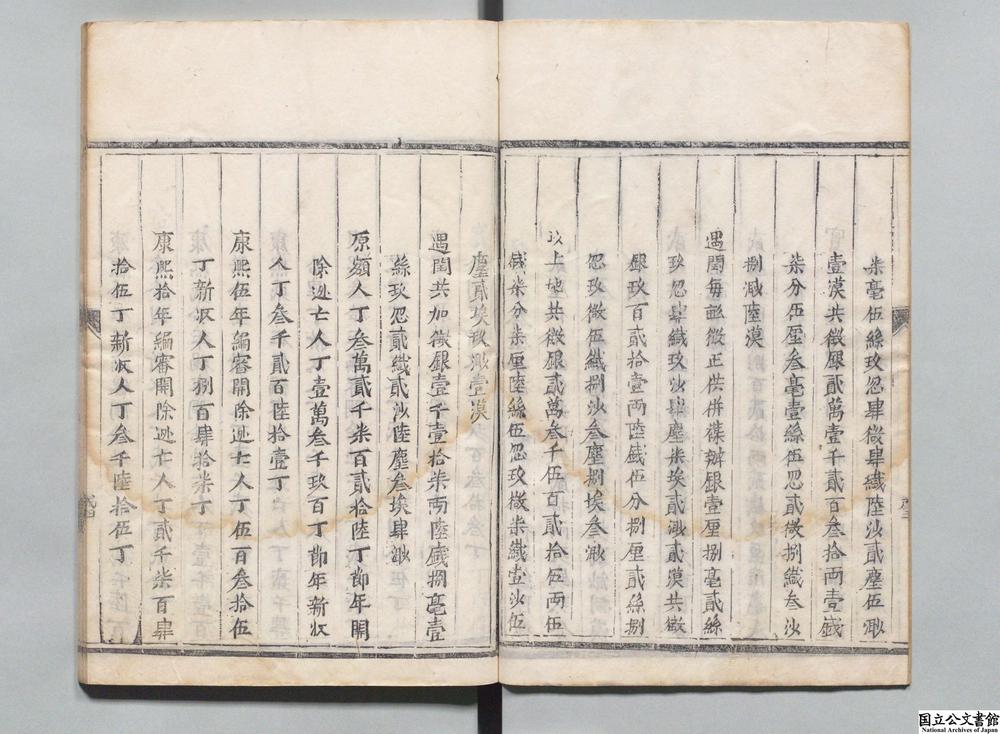 柒毫伍絲玖忽肆微肆纖陸沙貳塵伍渺
壹漠共徵銀貳萬壹千貳百叁拾兩壹錢
柒分伍厘叁毫壹絲伍忽貳微捌纖叁沙
捌渺陸漠
遇閏每畝徵正供併襍辦銀壹厘捌毫貳絲
玖忽肆纖玖沙肆塵柒埃貳渺貳漠共徵
銀玖百貳拾壹兩陸錢伍分捌厘貳絲捌
忽玖微伍纖捌沙叁塵捌埃叁渺
以上地共徵銀貳萬叁千伍百貳拾伍兩伍
錢柒分柒厘陸絲伍忽玖微柒纖壹沙伍
塵貳埃玖渺壹漠
遇閏共加徵銀壹千壹拾柒兩陸錢捌毫壹
絲玖忽貳纖貳沙陸塵叁埃肆渺
原額人丁叁萬貳千柒百貳拾陸丁節年開
除逃亡人丁壹萬叁千玖百丁節年新收
人丁叁千貳百陸拾壹丁
康熙伍年編審開除逃亡人丁伍百叁拾伍
丁新收人丁捌百肆拾柒丁
康熙拾年編審開除逃亡人丁貳千柒百肆
拾伍丁新收人丁叁千陸拾伍丁
国立公文書館
National Archives of Japan